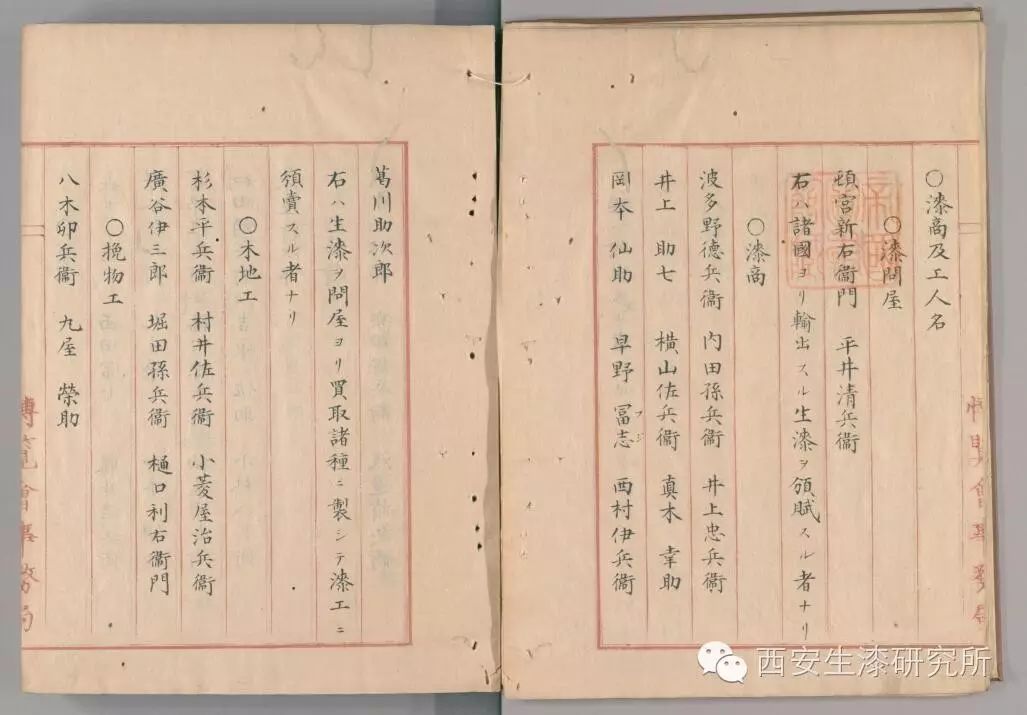 ○漆商及工人名
○漆問屋
頓宮新右衞門 平井清兵衞
右ハ諸國ヨリ輸出スル生漆ヲ頒賦スル者ナリ
○漆商
波多野德兵衞 内田孫兵衞 井上忠兵衞
井上助七 横山佐兵衞 真木幸助
岡本仙助 早野冨志 西村伊兵衞
フジ
葛川助次郎
右ハ生漆ヲ問屋ヨリ買取諸種ニ製シテ漆工ニ
頒賣スル者ナリ
○木地工
杉本平兵衞 村井佐兵衞 小菱屋治兵衞
廣谷伊三郎 堀田孫兵衞 樋口利右衞門
○挽物工
八木卯兵衞 九屋榮助
博覧會事務局
西安生漆研究所